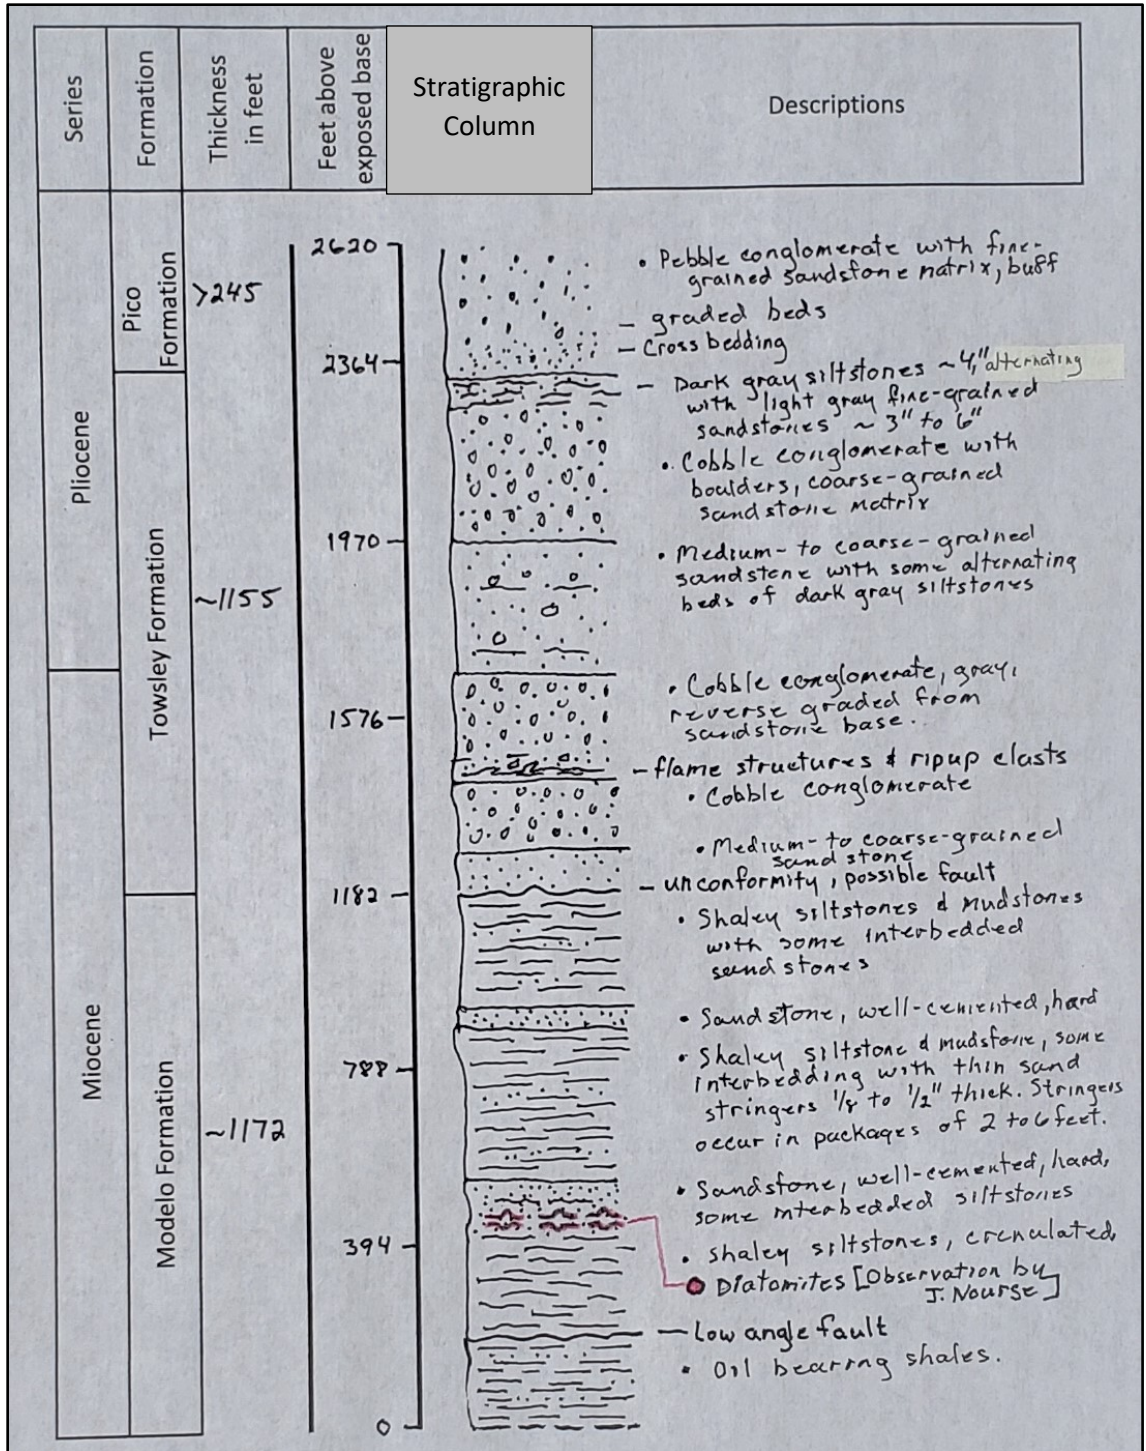 Series
Formation
Thickness
in feet
Feet above
exposed base
Stratigraphic
Column
Descriptions
Pliocene
Miocene
Pico
Formation
Towsley Formation
Modelo Formation
>245
~1155
~1172
2620
2364
1970
1576
1182
788
394
0
• Pebble conglomerate with fine-
grained sandstone matrix, buff
– graded beds
– Cross bedding
– Dark gray siltstones ~4," alternating
with light gray fine-grained
sandstones ~ 3" to 6"
• Cobble conglomerate with
boulders, coarse-grained
sandstone matrix
• Medium- to coarse-grained
sandstone with some alternating
beds of dark gray siltstones
• Cobble conglomerate, gray,
reverse graded from
sandstone base.
– flame structures & ripup clasts
• Cobble conglomerate
• Medium- to coarse-grained
sandstone
– unconformity, possible fault
• Shaley siltstones & mudstones
with some interbedded
sandstones
• Sandstone, well-cemented, hard
• Shaley siltstone & mudstone, some
interbedding with thin sand
stringers 1/8 to 1/2" thick. Stringers
occur in packages of 2 to 6 feet.
• Sandstone, well-cemented, hard,
some interbedded siltstones
• shaley siltstones, crenulated,
Diatomites [Observation by
J. Nourse]
– Low angle fault
• Oil bearing shales.